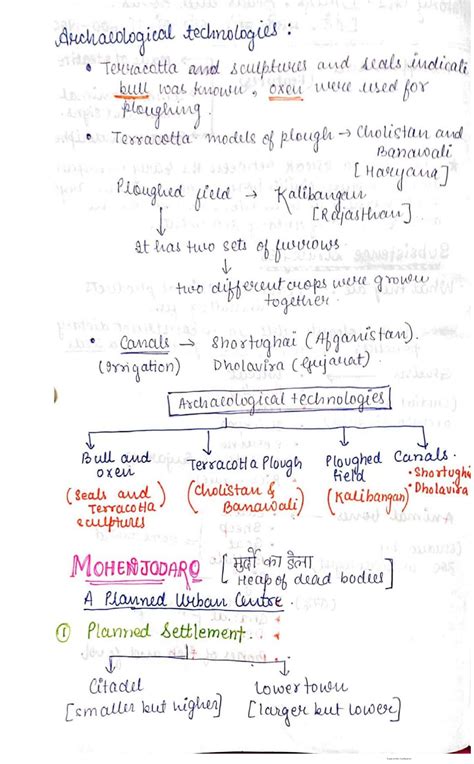 Archaeological technologies :
• Terracotta and sculptures and seals indicate
bull was known, oxen were used for
ploughing.
• Terracotta models of plough → Cholistan and
Banawali
[Haryana]
Ploughed field → Kalibangan
[Rajasthan]
↓
It has two sets of furrows.
↓
two different crops were grown
together.
• Canals → Shortughai (Afganistan).
(Irrigation) Dholavira (Gujarat).
Archaeological technologies
Bull and oxen
(Seals and Terracotta sculptures)
Terracotta Plough
(Cholistan & Banawali)
Ploughed field
(Kalibangan)
Canals.
• Shortughi
• Dholavira
MOHENJODARO [मुर्दो का डेला
Heap of dead bodies]
A Planned Urban Centre.
① Planned Settlement.
Citadel
[smaller but higher]
Lower town
[larger but lower]